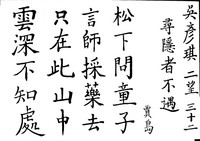 吳彥琪 二望 三十二
尋隱者不遇
賈島
松下問童子
言師採藥去
只在此山中
雲深不知處